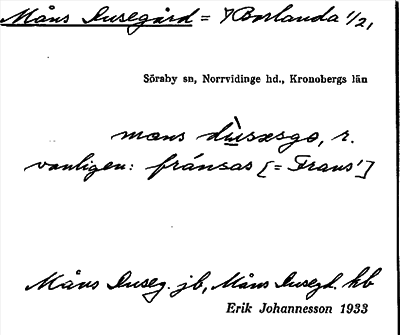 Måns Dusegård = Borlanda 1/2,
Söraby sn, Norrvidinge hd., Kronobergs län
mans dùsasgo, r.
vanligen: fránsas [= Frans']
Måns Duseg. jb, Måns Dusegd. kb
Erik Johannesson 1933